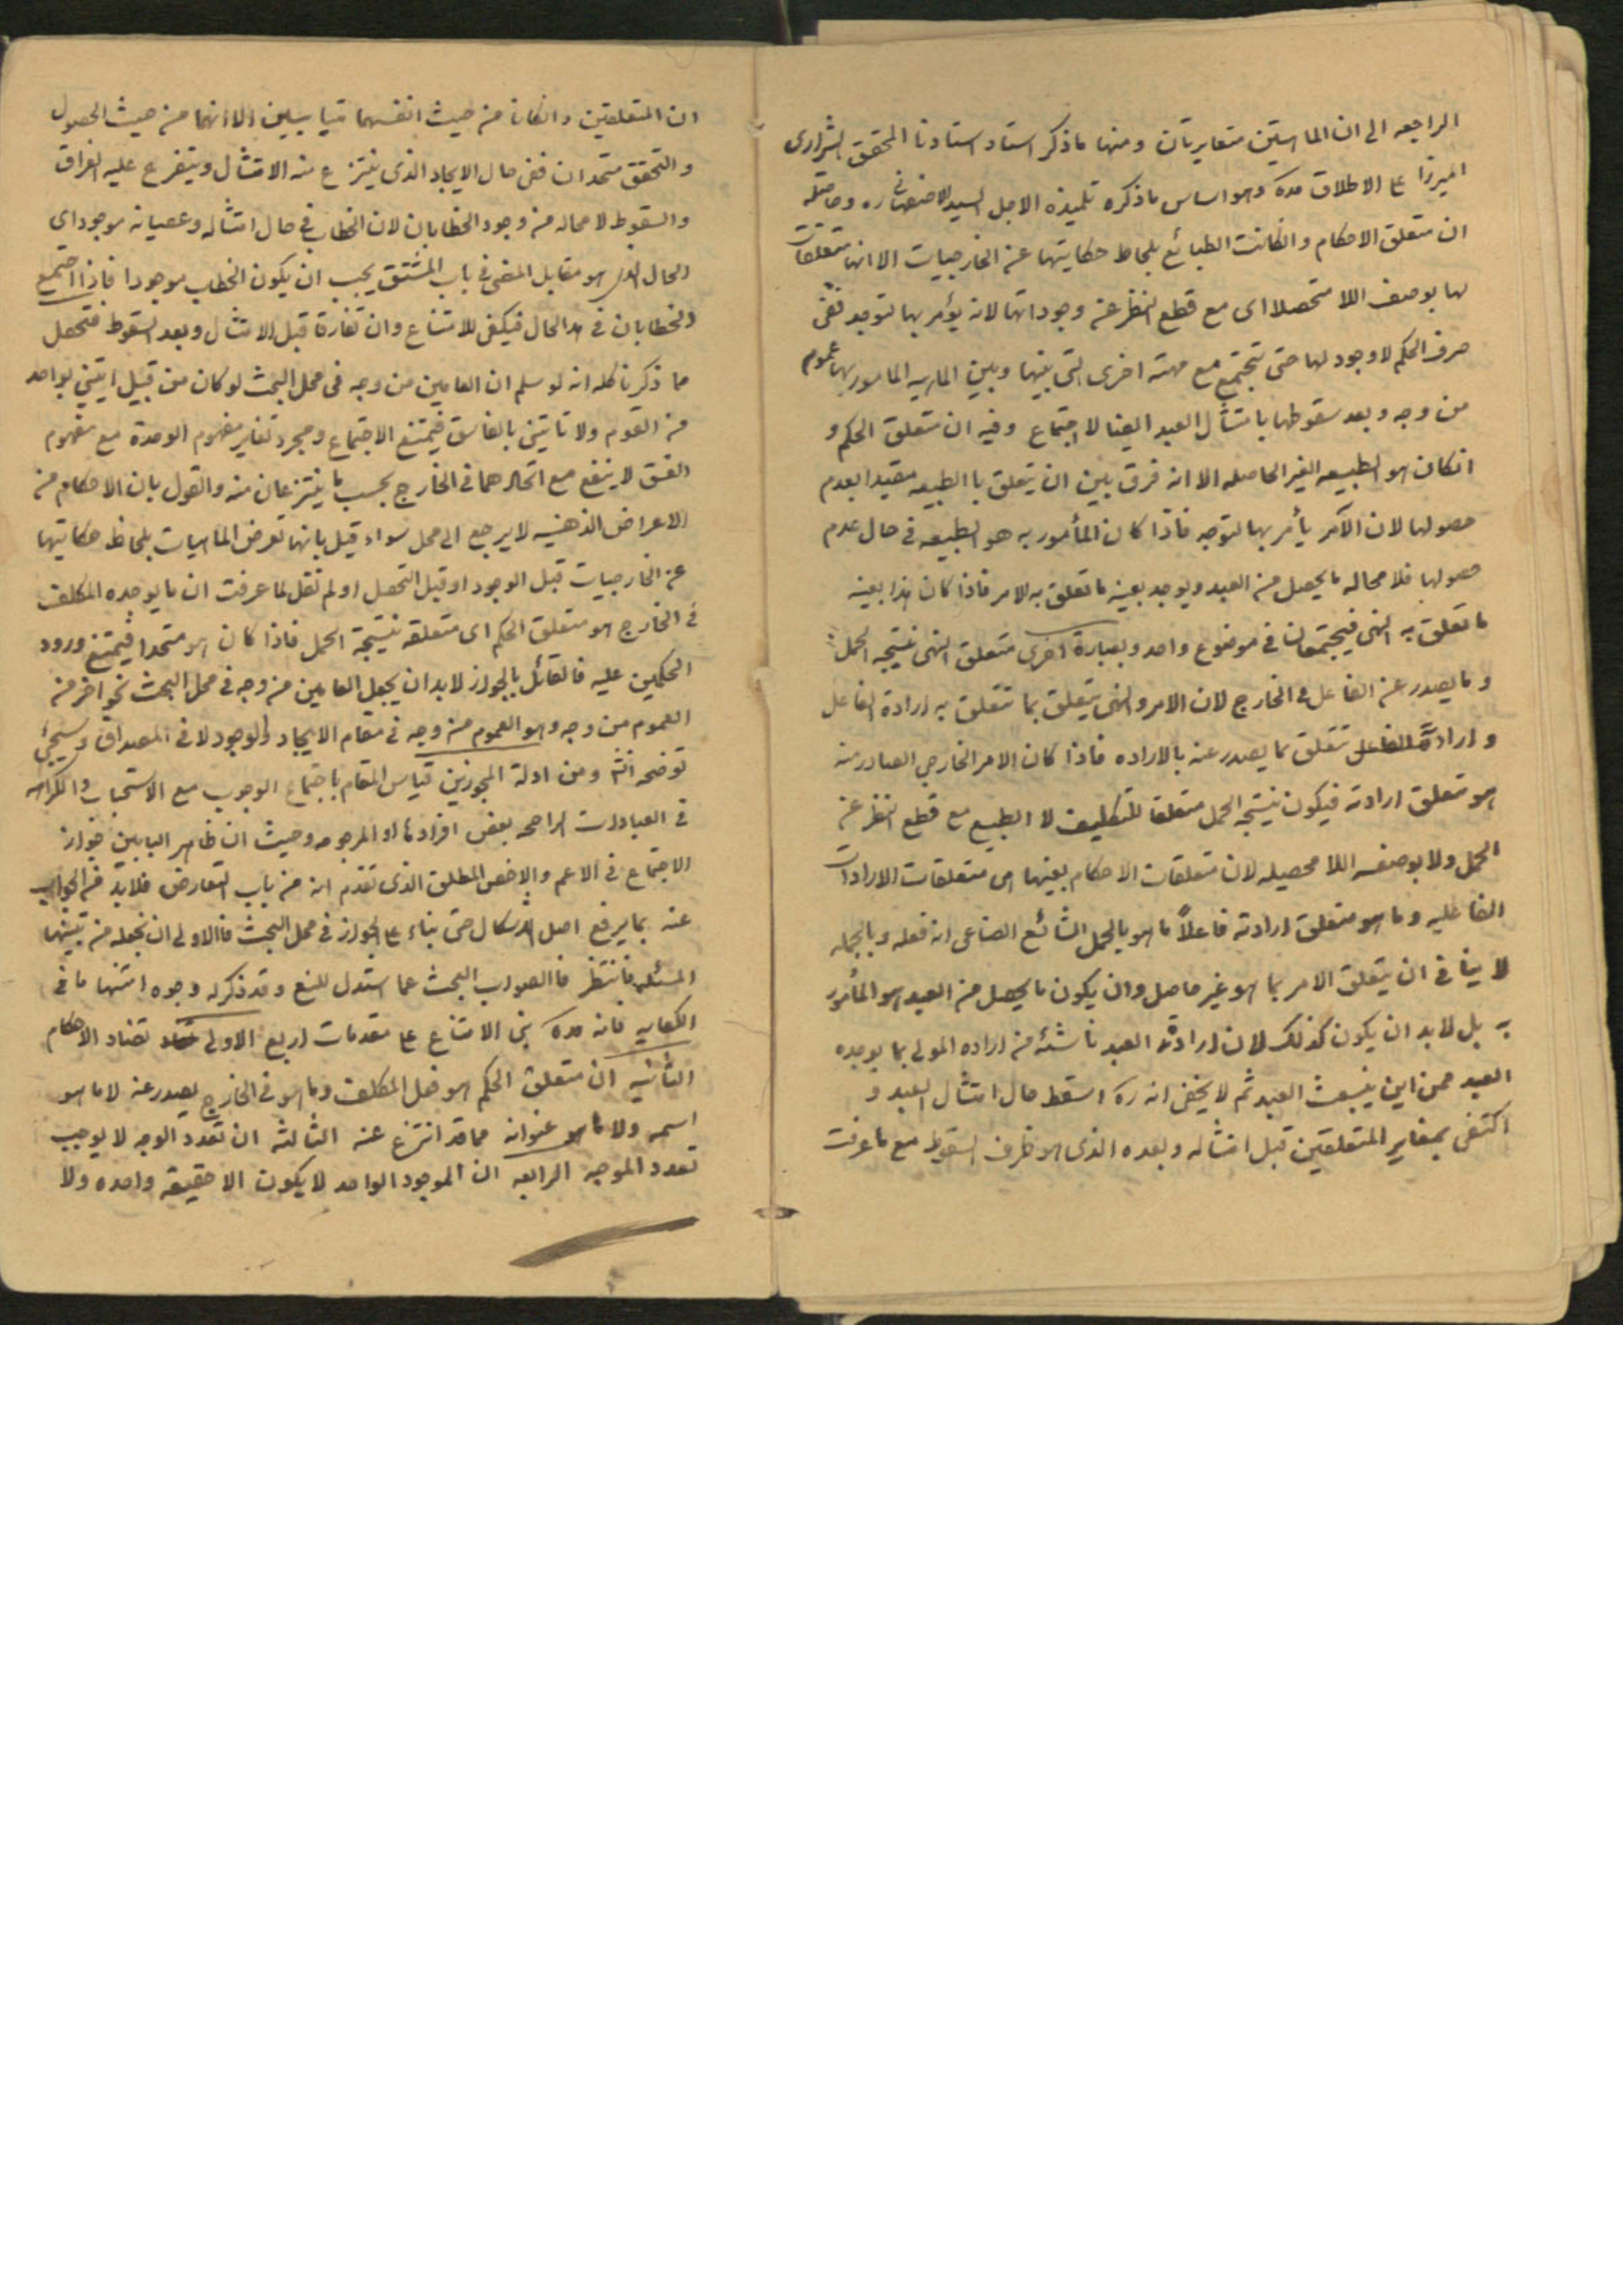 الراجعه الى ان الماهيتين متغايرتان ومنها ما ذكر استاد استادنا المحقق الشيرازى
الميرزا على الاطلاق وهو اساس ما ذكره تلميذه الاجل السيد الاصفهانى ره وحاصله
ان متعلق الاحكام وانكانت الطبائع بلحاظ حكايتها عن الخارجيات الا انها متعلقات
لها بوصف اللا متحصلا اى مع قطع النظر عن وجوداتها لانه يؤمر بها لتوجد ففى
ظرف الحكم لا وجود لها حتى تجتمع مع مهية اخرى التى بينها وبين الماهيه المامور بها عموم
من وجه وبعد سقوطها بامتثال العبد ايضا لا اجتماع وفيه ان متعلق الحكم و
انكان هو الطبيعه الغير الحاصله الا انه فرق بين ان يتعلق با الطبيعه مقيدا بعدم
حصولها لان الآمر يأمر بها لتوجد فاذا كان المأمور به هو الطبيعه فى حال عدم
حصولها فلا محاله ما يحصل من العبد ويوجد بعينه ما تعلق به الامر فاذا كان هذا بعينه
ما تعلق به النهى فيجتمعان فى موضوع واحد وبعبارة اخرى متعلق النهى نتيجه الحمل
وما يصدر عن الفاعل فى الخارج لان الامر والنهى يتعلق بما تتعلق به ارادة الفاعل
و ارادة الفاعل تتعلق بما يصدر عنه بالاراده فاذا كان الامر الخارجى الصادر منه
هو متعلق ارادته فيكون نتيجة الحمل متعلقا للتكليف لا الطبع مع قطع النظر عن
الحمل ولا بوصف اللا محصيله لان متعلقات الاحكام بعينها هى متعلقات الارادات
الفاعليه وما هو متعلق ارادته فاعلاً ما هو بالحمل الشائع الصناعى انه فعله وبالجمله
لا ينافى ان يتعلق الامر بما هو غير حاصل وان يكون ما يحصل من العبد هو المأمور
به بل لابد ان يكون كذلك لان ارادة العبد ناشئه من اراده المولى بما يوجده
العبد فمن اين ينبعث العبد ثم لا يخفى انه ره اسقط حال امتثال العبد و
اكتفى بمغاير المتعلقين قبل امتثاله وبعده الذى هو ظرف السقوط مع ما عرفت
ان المتعلقين وانكانا من حيث انفسهما متباينين الا انهما من حيث الحصول
والتحقق متحدان ففى حال الايجاد الذى ينتزع منه الامتثال ويتفرع عليه الفراق
والسقوط لا محاله من وجود الخطابان لان الخطاب فى حال امتثاله وعصيانه موجود اى
الحال الذى هو مقابل المضى فى باب المشتق يجب ان يكون الخطاب موجودا فاذا اجتمع
الخطابان فى هذ الحال فيكفى للامتناع وان تفارقا قبل الامتثال وبعد السقوط فتحصل
مما ذكرنا كله انه لو سلم ان العامين من وجه فى محل البحث لو كان من قبيل ايتينى بواحد
من القوم ولا تأتينى بالفاسق فيمتنع الاجتماع ومجرد تغاير مفهوم الوحدة مع مفهوم
الفسق لا ينفع مع اتحادهما فى الخارج بحسب ما ينتزعان منه والقول بان الاحكام من
الاعراض الذهنيه لا يرجع الى محل سواء قيل بانها تعرض الماهيات بلحاظ حكايتها
عن الخارجيات قبل الوجود او قبل التحصل او لم نقل لما عرفت ان ما يوجده المكلف
فى الخارج هو متعلق الحكم اى متعلقه نتيجة الحمل فاذا كان هو متحدا فيمتنع ورود
الحكمين عليه فالقائل بالجواز لابد ان يجعل العامين من وجه فى محل البحث نحو اخر من
العموم من وجه وهو العموم من وجه فى مقام الايجاد والوجود لا فى المصداق وسيجئ
توضحه انشَ ومن ادلة المجوزين قياس المقام باجتماع الوجوب مع الاستحباب والكراهه
فى العبادات الراجحه بعض افرادها او المرجوحه وحيث ان ظاهر البابين جواز
الاجتماع فى الاعم والاخص المطلق الذى تقدم انه من باب التعارض فلابد من الجواب
عنه بما يرفع اصل الاشكال حتى بناء على الجواز فى محل البحث فالاولى ان نجعله من تنبيهات
المسئله فانتظر فاالصواب البحث عما استدل للمنع وقد ذكر له وجوه امتنها ما فى
الكفايه فانه بنى الامتناع على مقدمات اربع الاولى تضاد الاحكام
الثانيه ان متعلق الحكم هو فعل المكلف وما هو فى الخارج يصدر عنه لا ما هو
اسمه ولا ما هو عنوانه مما قد انتزع عنه الثالثه ان تعدد الوجه لا يوجب
تعدد الموجه الرابعه ان الموجود الواحد لا يكون الا حقيقة واحده ولا